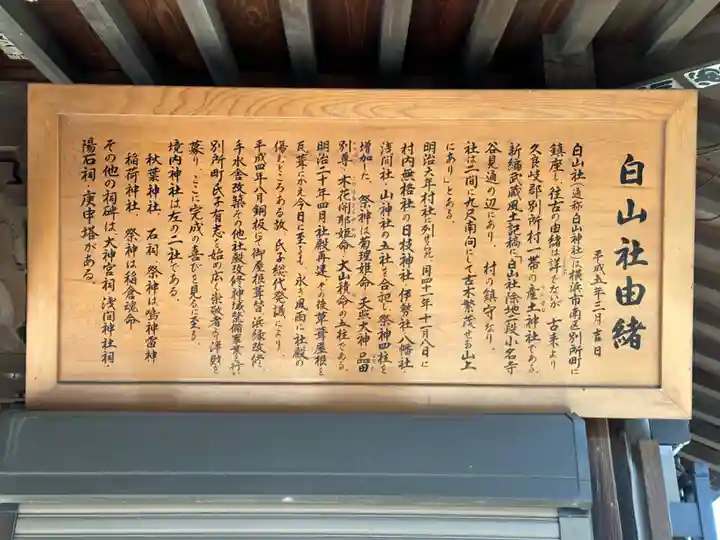 白山社由緒
平成五年二月吉日
白山社(通称白山神社)は横浜市南区別所町に
鎮座し往古の由緒は詳でないが、古来より
久良岐郡別所村一帯の産土神社である。
新編武蔵風土記稿に「白山社除地二段小名寺
谷見通の辺にあり、村の鎮守なり、
社は二間に九尺南向にして古木繁茂せる山上
にあり」とある。
明治六年村社に列せられ、同四十一年十一月八日に
村内無格社の日枝神社、伊勢社、八幡社
浅間社、山神社の五社を合祀し、祭神四柱を
増加した、祭神は菊理姫命、天照大神、品田
別尊、木花開耶姫命、大山積命の五柱である。
明治二十年四月社殿再建、その後草葺屋根を
瓦葺にかえ今日に至るも、永き風雨に社殿の
傷むところある故、氏子総代発議により、
平成四年八月銅板にて御屋根葺替、浜縁改修、
手水舎改築その他社殿改修神域整備事業を行い
別所町氏子有志を始め広く崇敬者の浄財を
募り、ここに完成の喜びを見るに至る。
境内神社は左の二社である。
秋葉神社、石祠、祭神は鳴神雷神
稲荷神社、祭神は稲倉魂命
その他の祠碑は、大神宮祠、浅間神社祠、
陽石祠、庚申塔がある。